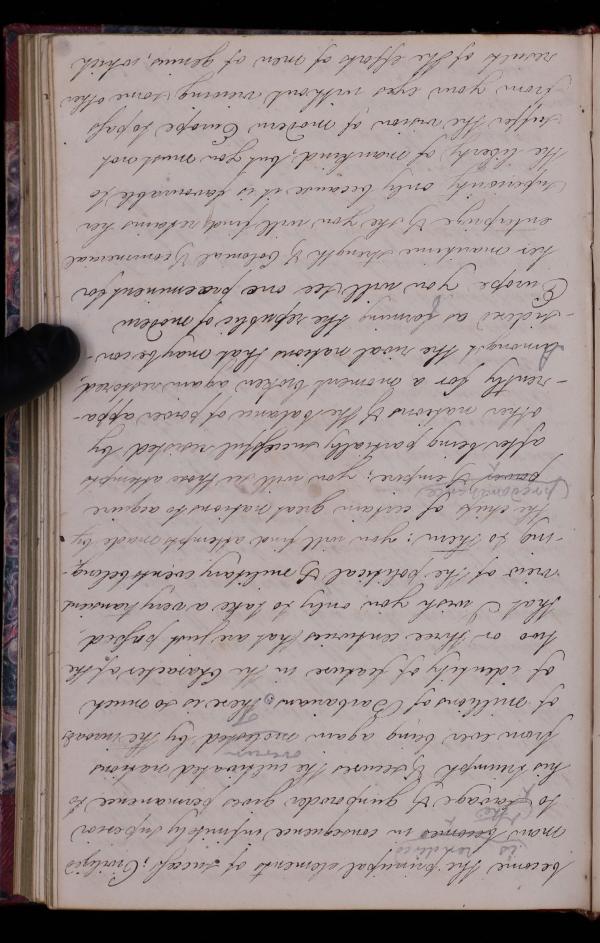 become the principal elements of success; Civilized
is rendered
man becomes in consequence infinitely superior
the
to savage & gunpowder gives permanence to
his triumph & secures the cultivated nations
overrun
from ever being again molested by the inroads
of millions of Barbarians. There is so much
of identity of feature in the Character of the
two or three centuries that are just passed
that I wish you only to take a very transient
view of the political & military events belong-
-ing to them; you will find attempts made by
the chiefs of certain great nations to acquire
predominance
power & empire; you will see those attempts
after being partially successful resisted by
other nations & the balance of power appa-
-rently for a moment broken again restored.
Amongst the rival nations that may be con-
-sidered as forming the republic of modern
Europe you will see one preeminent for
her maritime strength & Colonial & commercial
enterprize & she you will find retains her
superiority only because it is favourable to
the liberty of mankind; but you must not
suffer the vision of modern Europe to pass
from your eyes without viewing some other
results of the efforts of men of genius, which